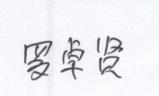 罗卓贤